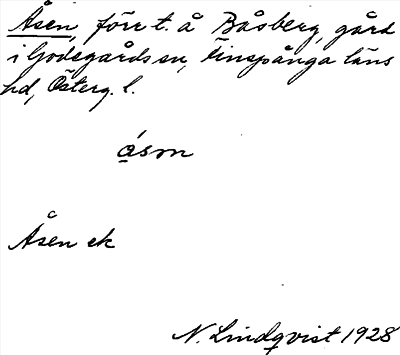 Åsen, förr t. å Båsberg, gård
i Godegårds sn, Finspånga läns
hd, Österg. l.
ȧsṃ
Åsen ek
N. Lindqvist 1928